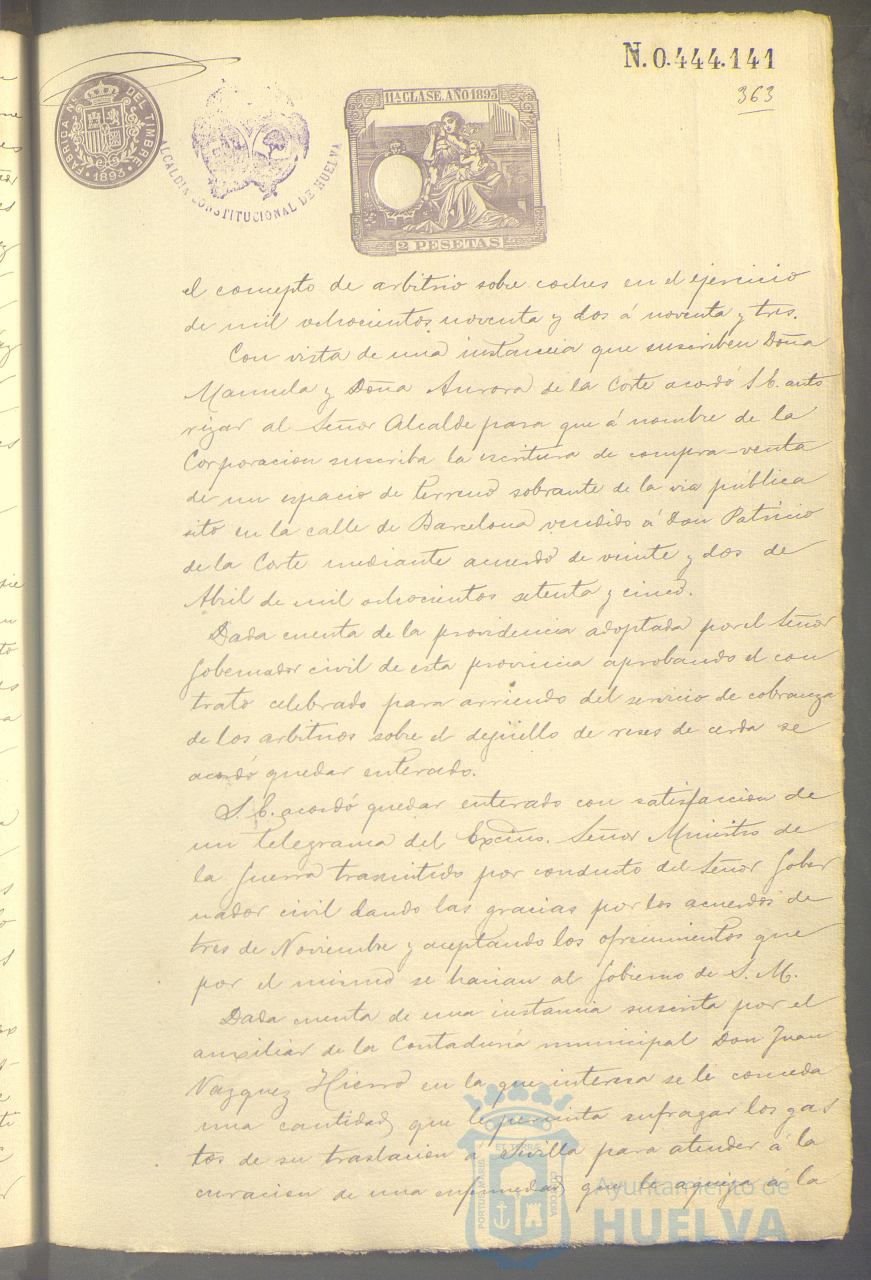 N. 0.444.141
363
FABRICA NAL. DEL TIMBRE
1893
ALCALDIA CONSTITUCIONAL DE HUELVA
11ª CLASE. AÑO 1893
2 PESETAS
el concepto de arbitrio sobre coches en el ejercicio
de mil ochocientos noventa y dos á noventa y tres.
Con vista de una instancia que suscriben Doña
Manuela y Doña Aurora de la Corte acordó S. E. auto
rizar al Señor Alcalde para que á nombre de la
Corporacion suscriba la escritura de compra-venta
de un espacio de terreno sobrante de la via pública
sito en la calle de Barcelona vendido á Don Patricio
de la Corte mediante acuerdo de veinte y dos de
Abril de mil ochocientos setenta y cinco.
Dada cuenta de la providencia adoptada por el Señor
Gobernador civil de esta provincia aprobando el con
trato celebrado para arriendo del servicio de cobranza
de los arbitrios sobre el degüello de reses de cerda se
acordó quedar enterado.
S. E. acordó quedar enterado con satisfaccion de
un telegrama del Excmo. Señor Ministro de
la Guerra trasmitido por conducto del Señor Gober
nador civil dando las gracias por los acuerdos de
tres de Noviembre y aceptando los ofrecimientos que
por el mismo se hacian al Gobierno de S. M.
Dada cuenta de una instancia suscrita por el
auxiliar de la Contaduría municipal Don Juan
Vazquez Hierro en la que interesa se le conceda
una cantidad que le permita sufragar los gas
tos de su traslacion a Sevilla para atender á la
curacion de una enfermedad que le aqueja á la
PORTUS MARIS ET TERRAE CUSTODIA
Ayuntamiento de
HUELVA